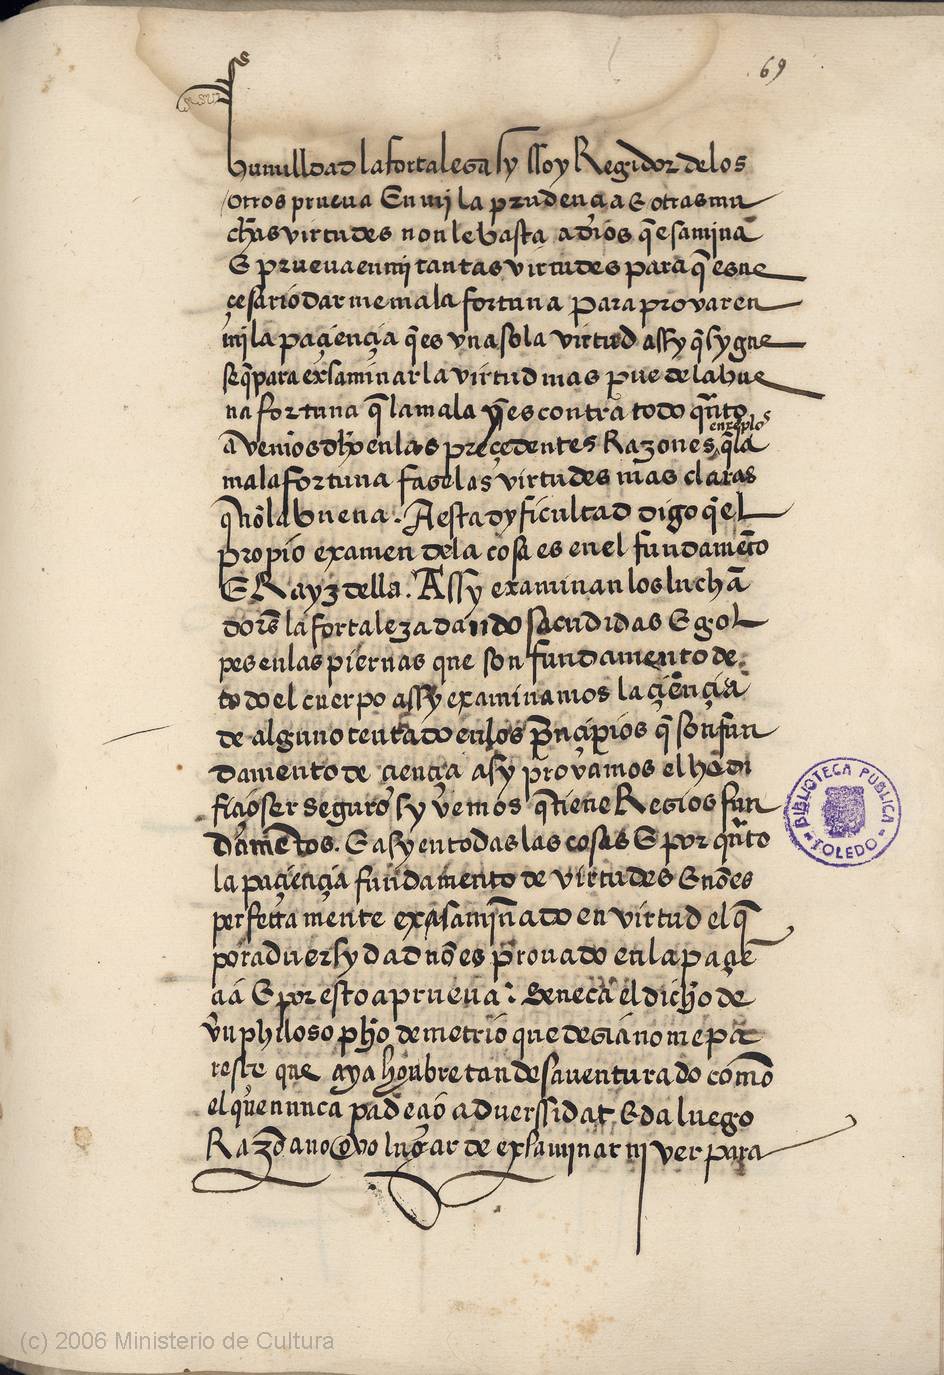 69
humilldad la fortaleza sy ssoy Regidor delos
otros prueva En mj la prudençia a E otras mu
chas virtudes non le basta a dios q̃ esamina
E prueva en mj tantas virtudes para q̃ es ne
çesario dar me mala fortuna para provar en
mj la paçiençia q̃ es vna sola virtud assy q̃ sygue
se q̃ para exsaminar la virtud mas puede la bue
na fortuna q̃ la mala y es contra todo qñto
avemos dho en las preçedentes Razones, q̃ la
enxẽplos
mala fortuna faze las virtudes mas claras
q̃ nõ la buena. A esta dyficultad digo q̃ el
propio examen de la cosa es en el fundamẽto
E Rayz della. Assy examinan los luchã
dores la fortaleza dando sacudidas E gol
pes en las piernas que son fundamento de
todo el cuerpo assy examinamos la çiençia
de alguno tentado en los prinçipios q̃ son fun
damento de çiençia asy provamos el hedi
fiçio ser seguro sy vemos q̃ tiene Rezios fun
damẽtos. E asy en todas las cosas E por qñto
la paçiençia fundamento de virtudes E nõ es
perfecta mente exasamjnado en virtud el q̃
por adversydad nõ es provado en la paçiẽ
çia E por esto aprueva: Seneca el dicho de
vn philosopho demetrio que dezia no me pa
resçe que aya honbre tan desaventurado como
el que nunca padeçio adverssidat E da luego
Razõ ca no ovo lugar de exsaminar nj ver para
BIBLIOTECA PUBLICA
TOLEDO
(c) 2006 Ministerio de Cultura